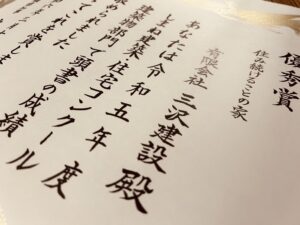 優秀賞
住み続けることの家
有限会社 三沢建設 殿
あなたは令和五年度
しまね建築・住宅コンクール
建築物部門で頭書の成績
められました